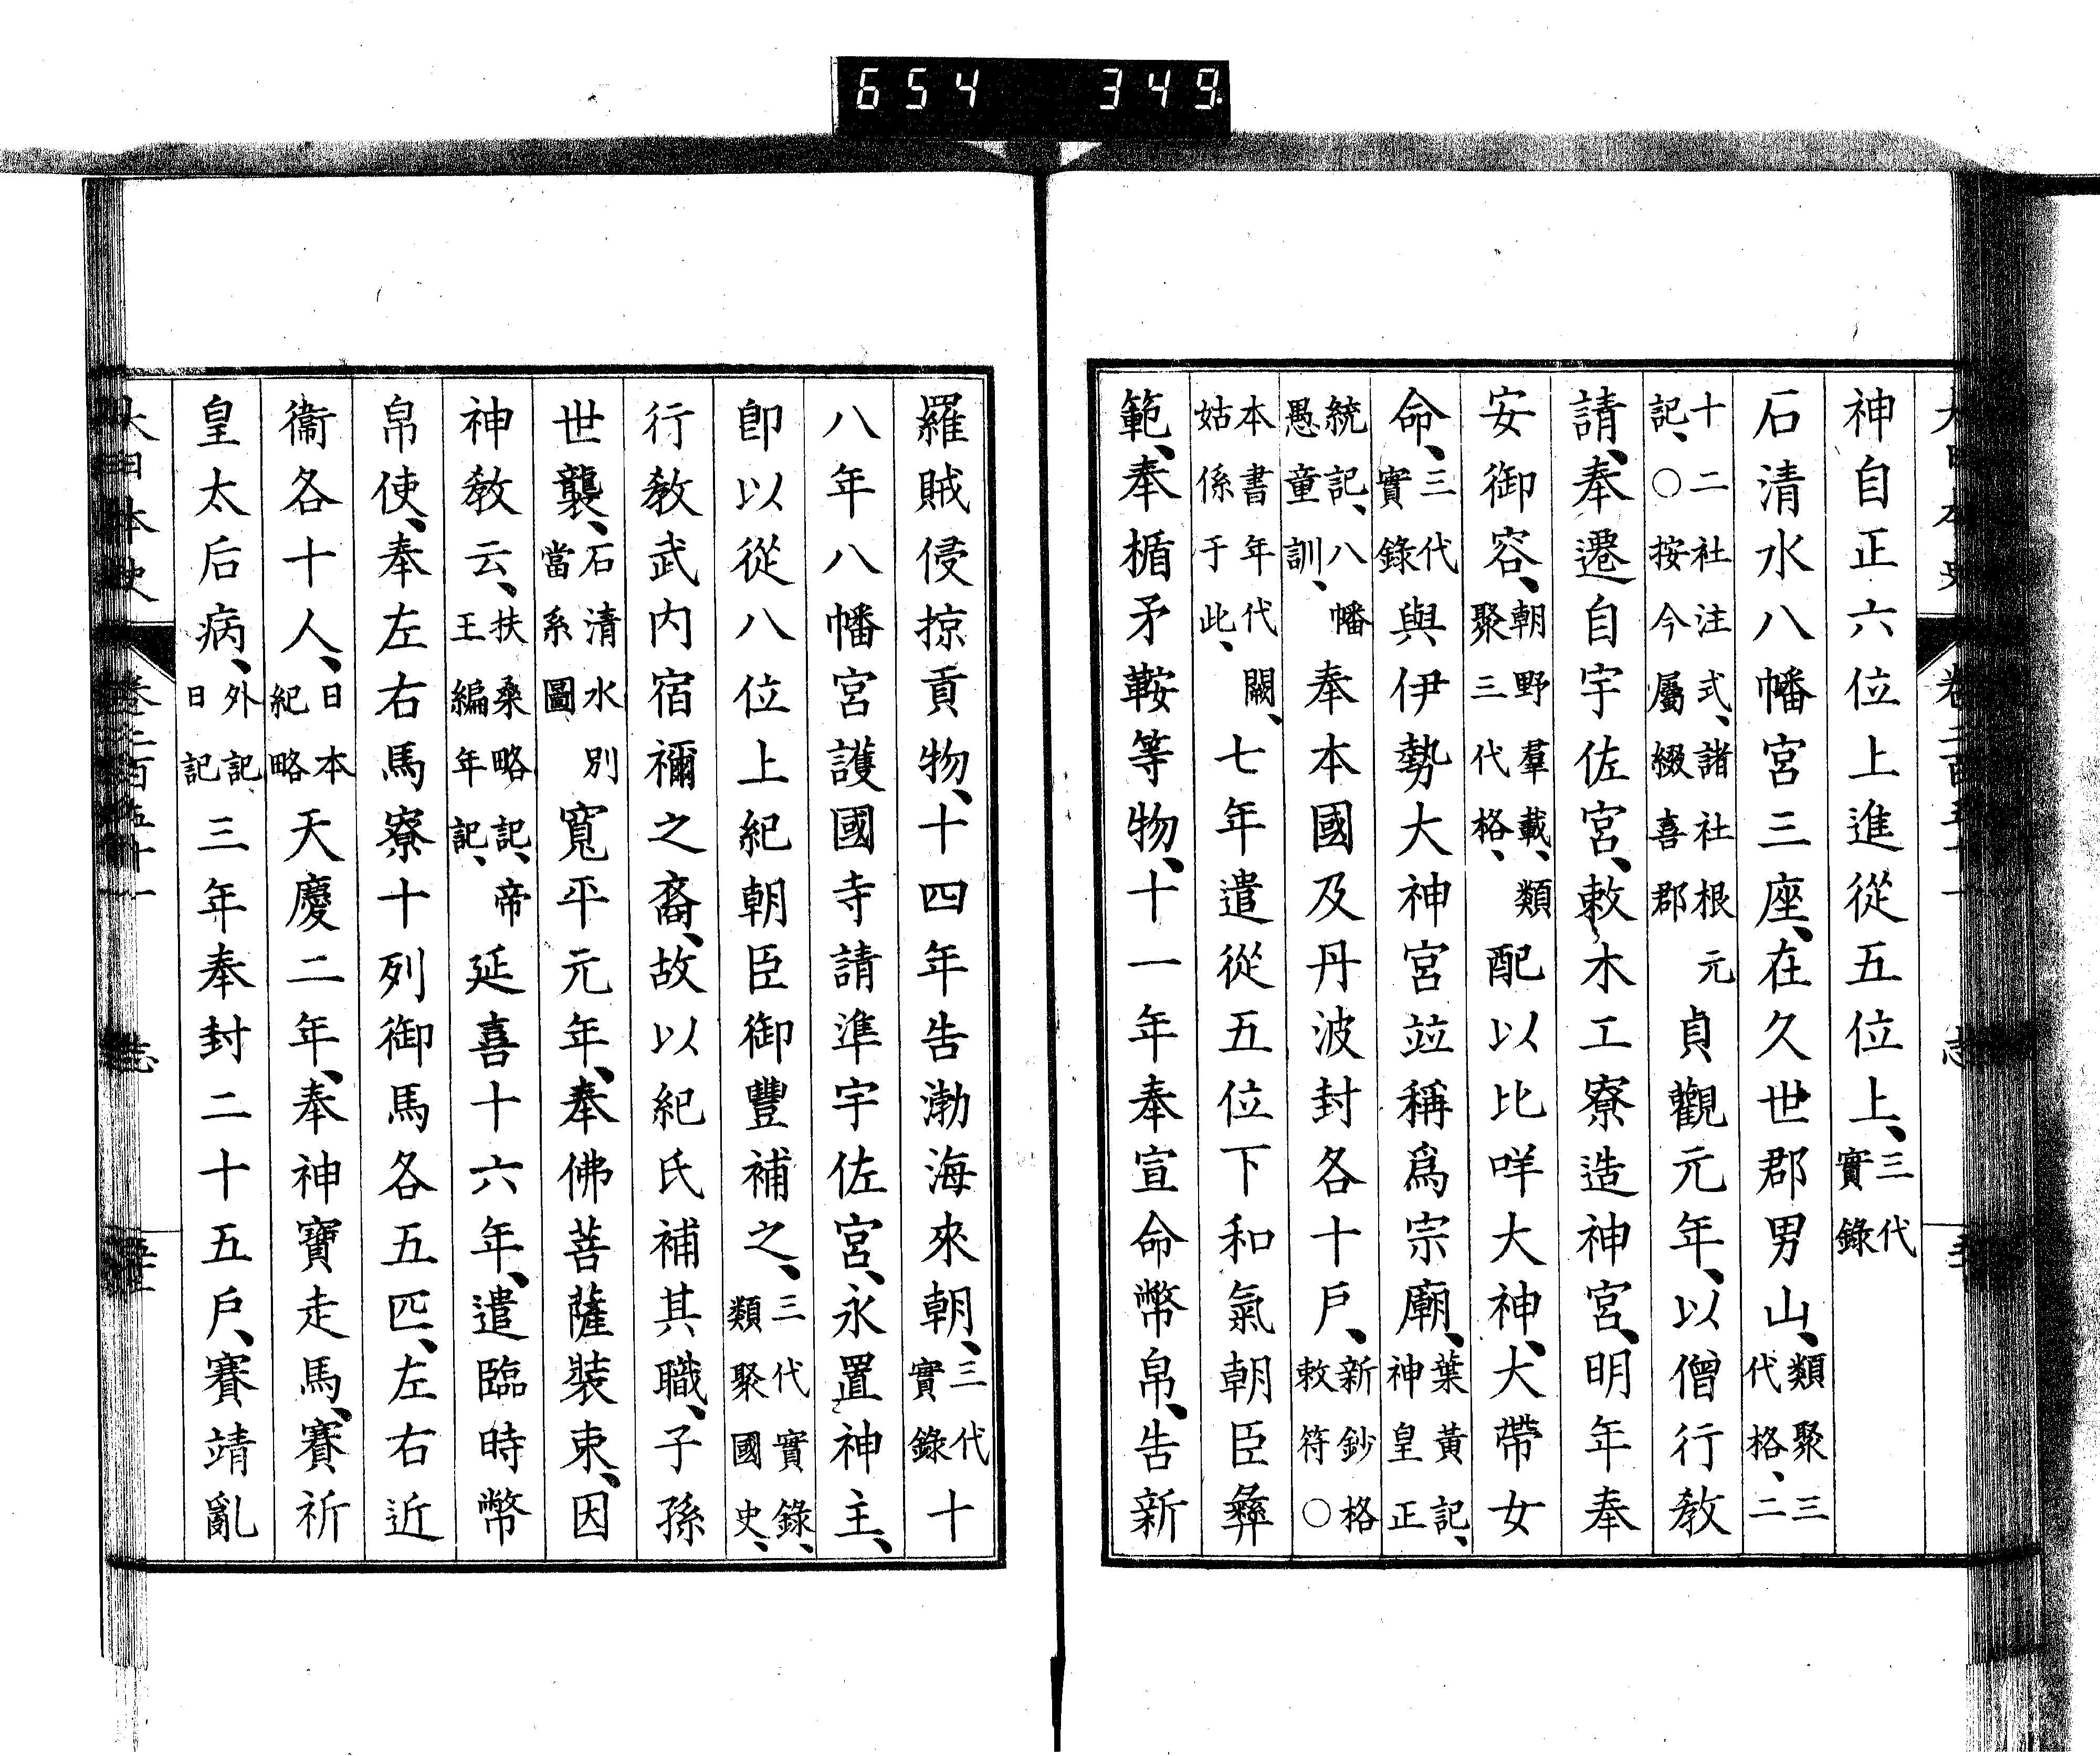 654 349
神自正六位上進從五位上、三代實錄
石清水八幡宮三座、在久世郡男山、類聚三代格、二
十二社注式、諸社根元記、○按今屬綴喜郡貞觀元年、以僧行敎
請、奉遷自宇佐宮、敕木工寮造神宮、明年奉
安御容、朝野羣載、類聚三代格、配以比咩大神、大帶女
命、三代實錄與伊勢大神宮竝稱爲宗廟、葉黃記、神皇正
統記、八幡愚童訓、奉本國及丹波封各十戶、新鈔格敕符○
本書年代闕、姑係于此、七年遣從五位下和氣朝臣彝
範、奉楯矛鞍等物、十一年奉宣命幣帛、告新
羅賊侵掠貢物、十四年告渤海來朝、三代實錄十
八年八幡宮護國寺請準宇佐宮、永置神主、
卽以從八位上紀朝臣御豐補之、三代實錄、類聚國史、
行敎武内宿禰之裔、故以紀氏補其職、子孫
世襲、石清水別當系圖寬平元年、奉佛菩薩裝束、因
神敎云、扶桑略記、帝王編年記、延喜十六年、遣臨時幣
帛使、奉左右馬寮十列御馬各五匹、左右近
衞各十人、日本紀略天慶二年、奉神寶走馬、賽祈
皇太后病、外記日記三年奉封二十五戶、賽靖亂
大日本史 卷二百五十一 志